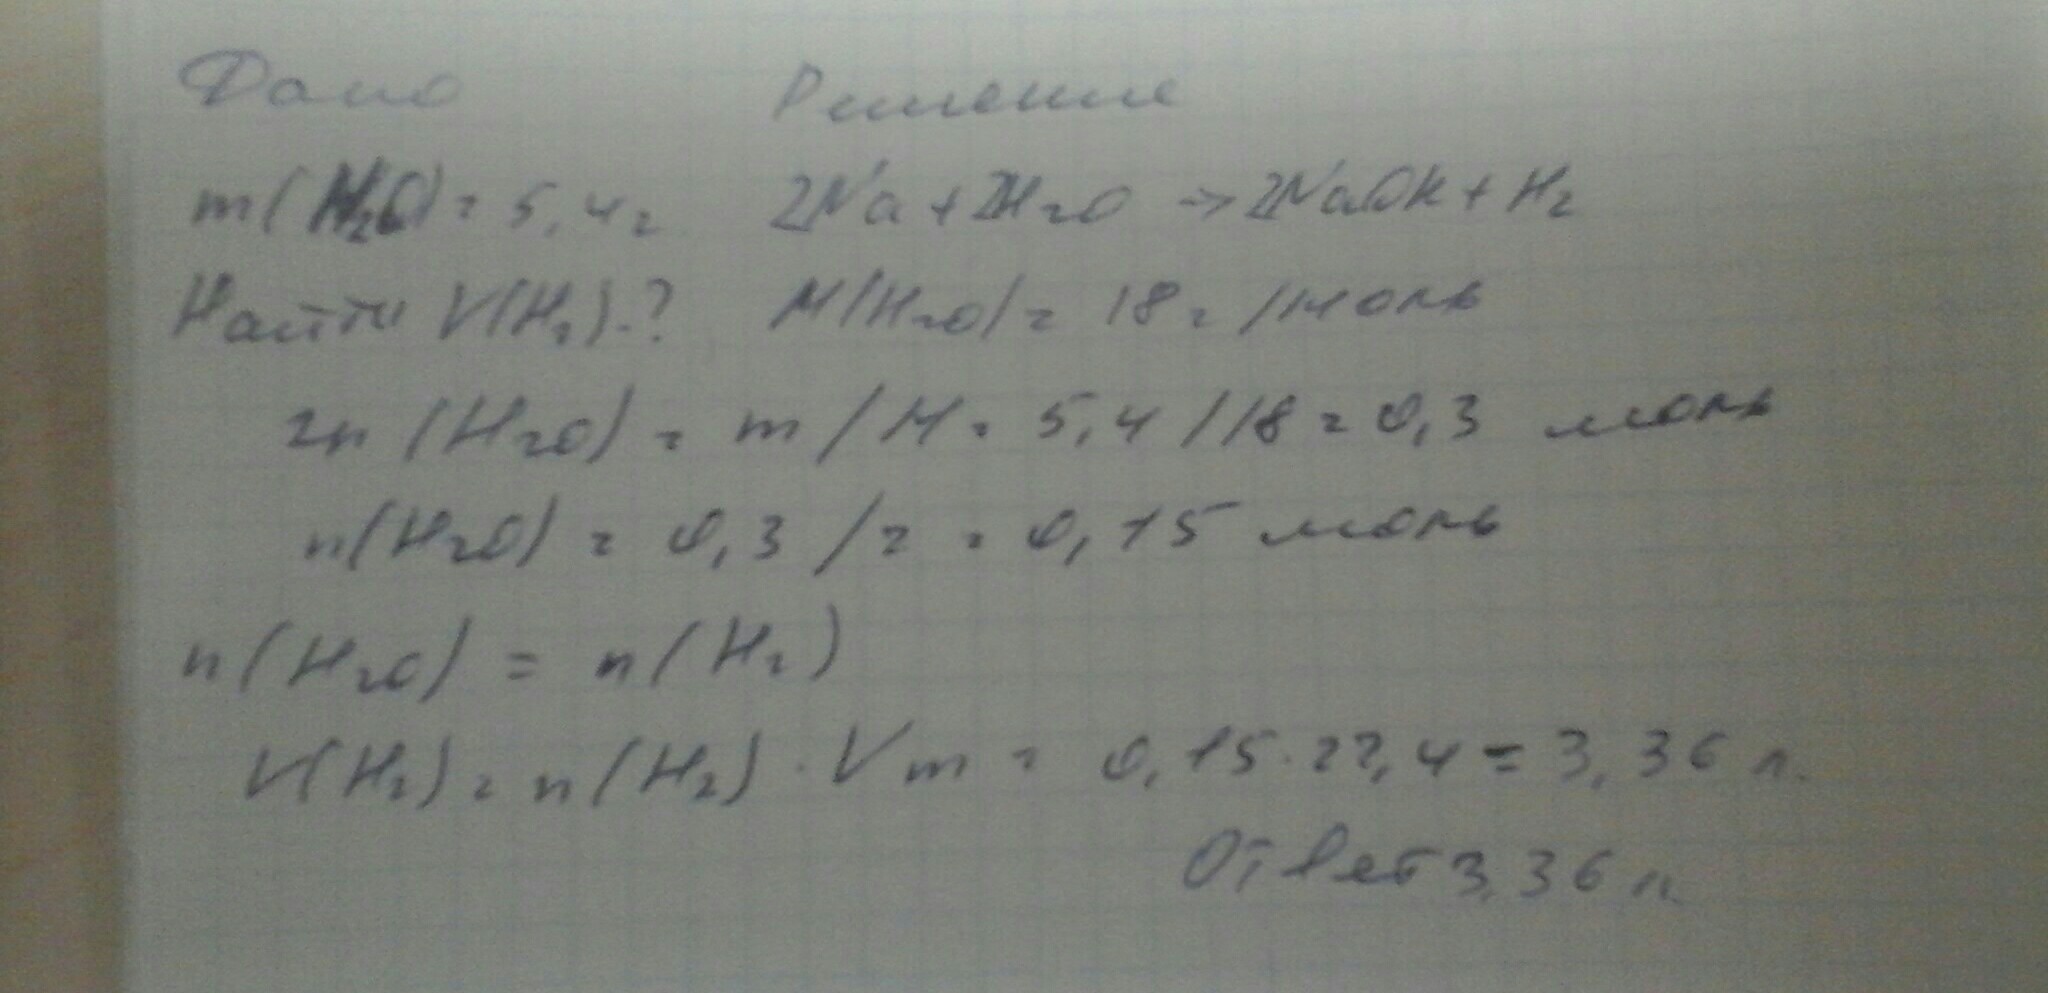 Дано Решение
m(H₂O) = 5,4г 2Na + 2H₂O → 2NaOH + H₂
Найти V(H₂)-? M(H₂O) = 18г/моль
2n(H₂O) = m/M = 5,4/18 = 0,3 моль
n(H₂O) = 0,3/2 = 0,15 моль
n(H₂O) = n(H₂)
V(H₂) = n(H₂)·Vm = 0,15·22,4 = 3,36 л.
Ответ 3,36 л.